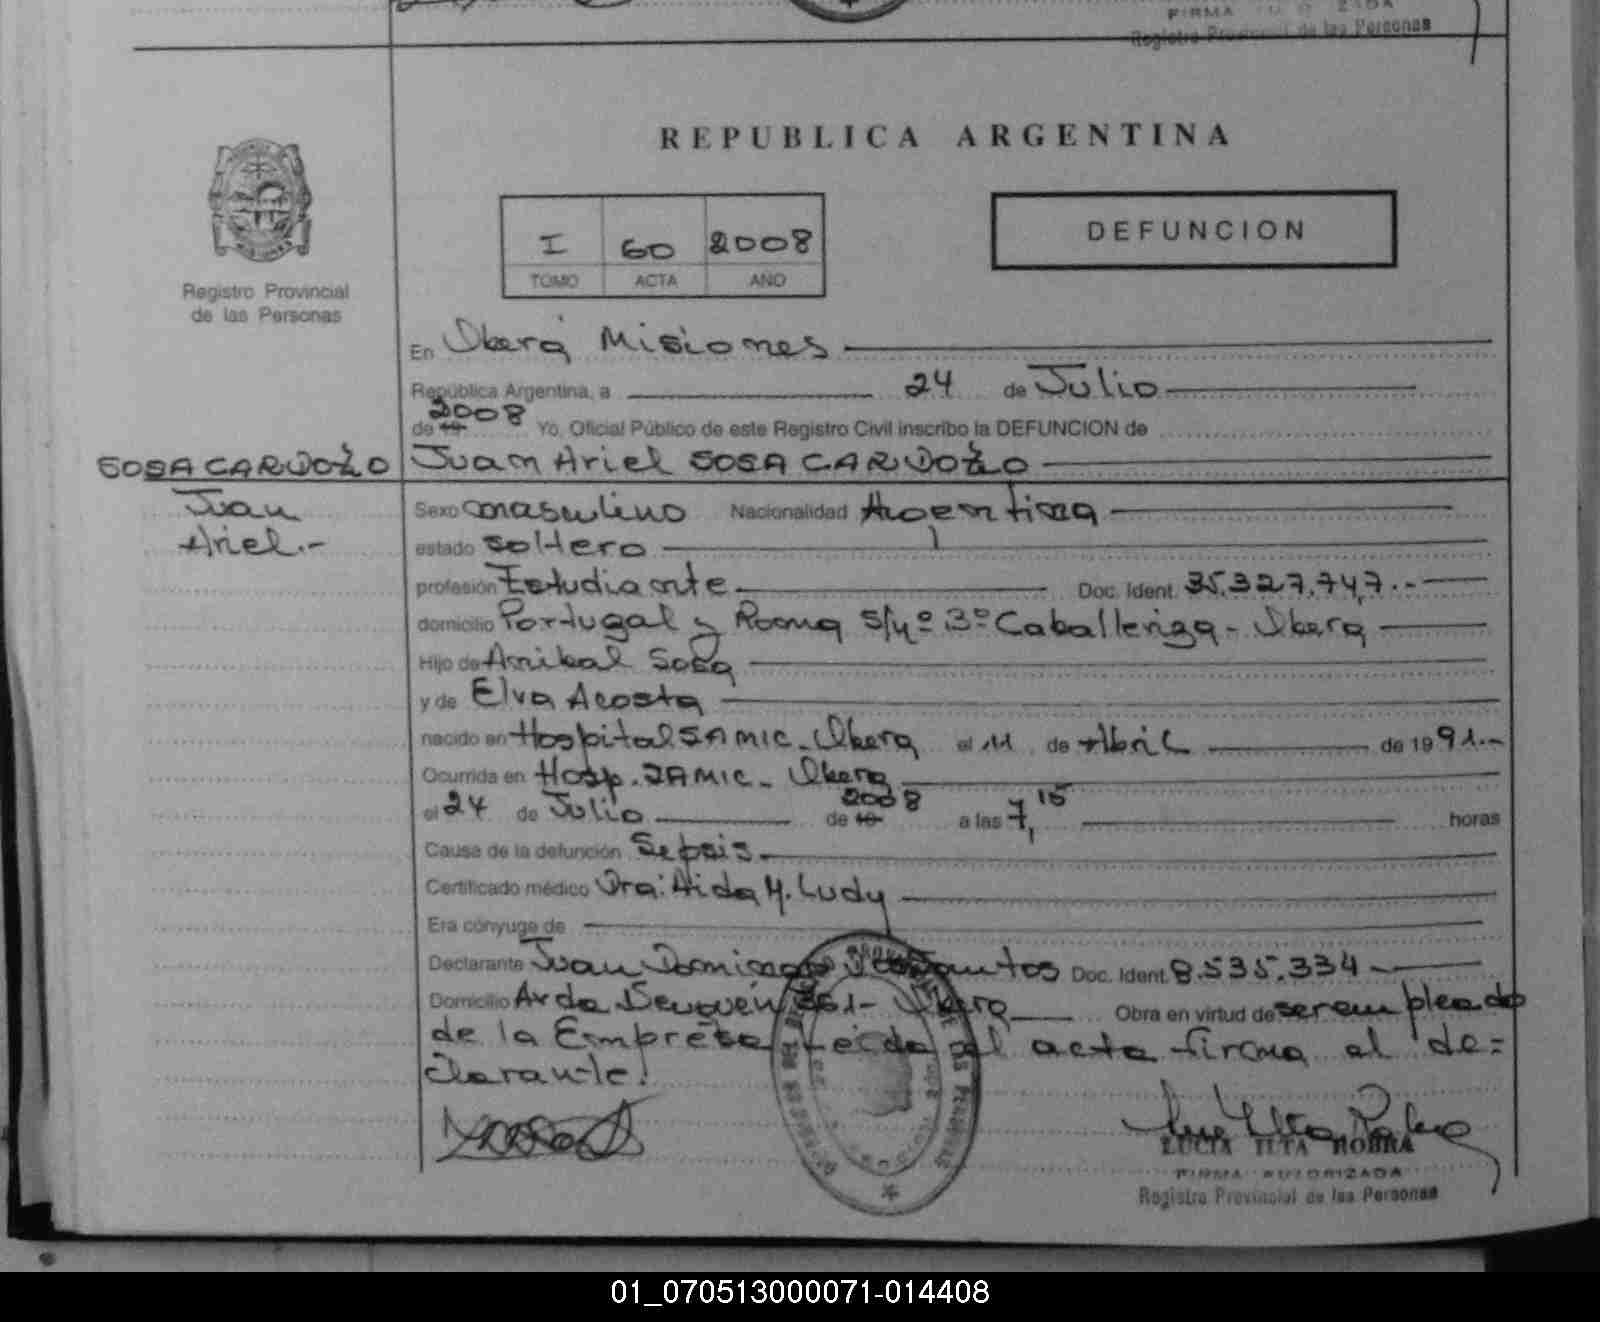 FIRMA
Registro Provincial de las Personas
REPUBLICA ARGENTINA
I 60 2008
TOMO ACTA AÑO
DEFUNCION
Registro Provincial
de las Personas
En Oberá Misiones
República Argentina, a 24 de Julio
2008
de 19 Yo, Oficial Público de este Registro Civil inscribo la DEFUNCION de
SOSA CARDOZO Juan Ariel SOSA CARDOZO
Juan
Ariel.-
Sexo masculino Nacionalidad Argentina
estado soltero
profesión Estudiante Doc. Ident. 35.327.747.-
domicilio Portugal y Roma S/nº Bº Caballeriza - Obera
Hijo de Anibal Sosa
y de Elva Acosta
nacido en Hospital SAMIC - Obera el 11 de Abril de 1991.-
Ocurrida en Hosp. SAMIC - Obera
el 24 de Julio de 19 2008 a las 7,15 horas
Cause de la defunción Sepsis.
Certificado médico Dra: Aida M. Ludy
Era cónyuge de
Declarante Juan Domingo Dos Santos Doc. Ident. 8.535.334
Domicilio Avda 361- Obera Obra en virtud de ser empleado
de la Empresa Leida el acta firma el de=
clarante.
LUCIA ROBRA
FIRMA AUTORIZADA
Registro Provincial de las Personas
01_070513000071-014408